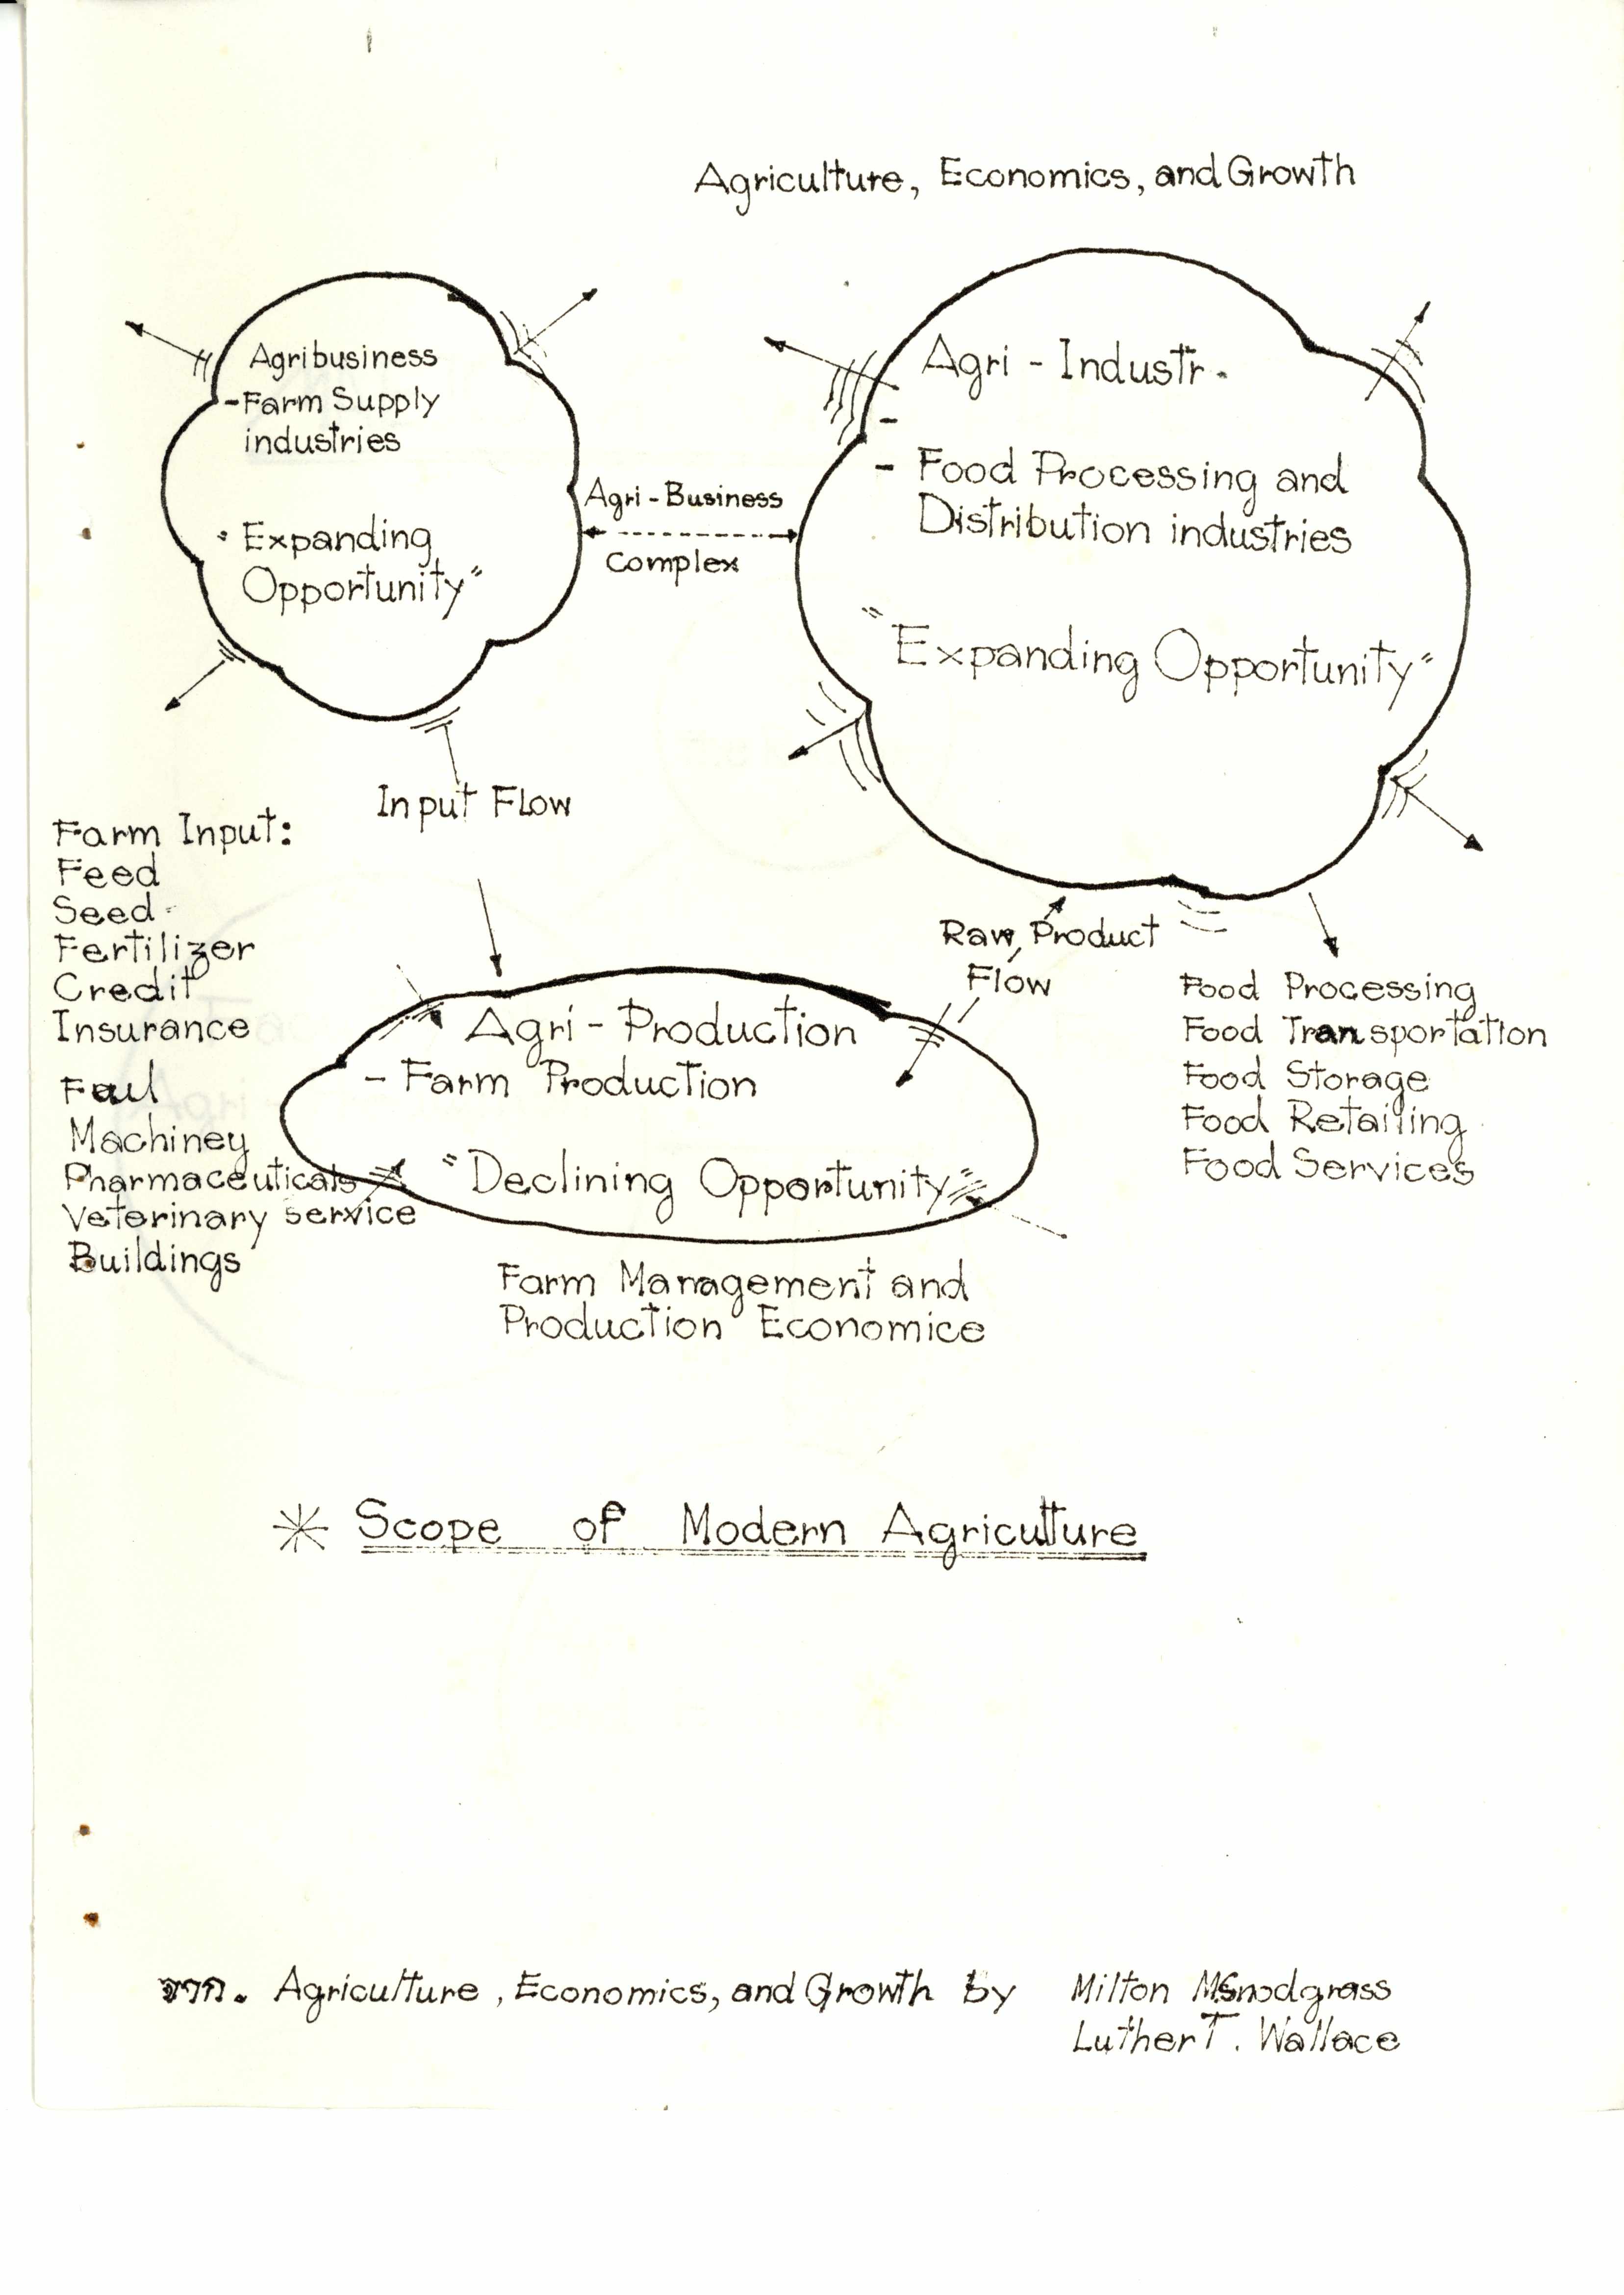 Agriculture, Economics, and Growth
Agribusiness
- Farm Supply
industries
" Expanding
Opportunity"
Agri - Business
Complex
Agri - Industr.
-
- Food Processing and
Distribution industries
"Expanding Opportunity"
Input Flow
Farm Input:
Feed
Seed
Fertilizer
Credit
Insurance
Faul
Machiney
Pharmaceuticals
Veterinary service
Buildings
Raw Product
Flow
Agri - Production
- Farm Production
"Declining Opportunity"
Food Processing
Food Transportation
Food Storage
Food Retailing
Food Services
Farm Management and
Production Economice
* Scope of Modern Agriculture
จาก. Agriculture, Economics, and Growth by Milton MSnodgrass
Luther T. Wallace